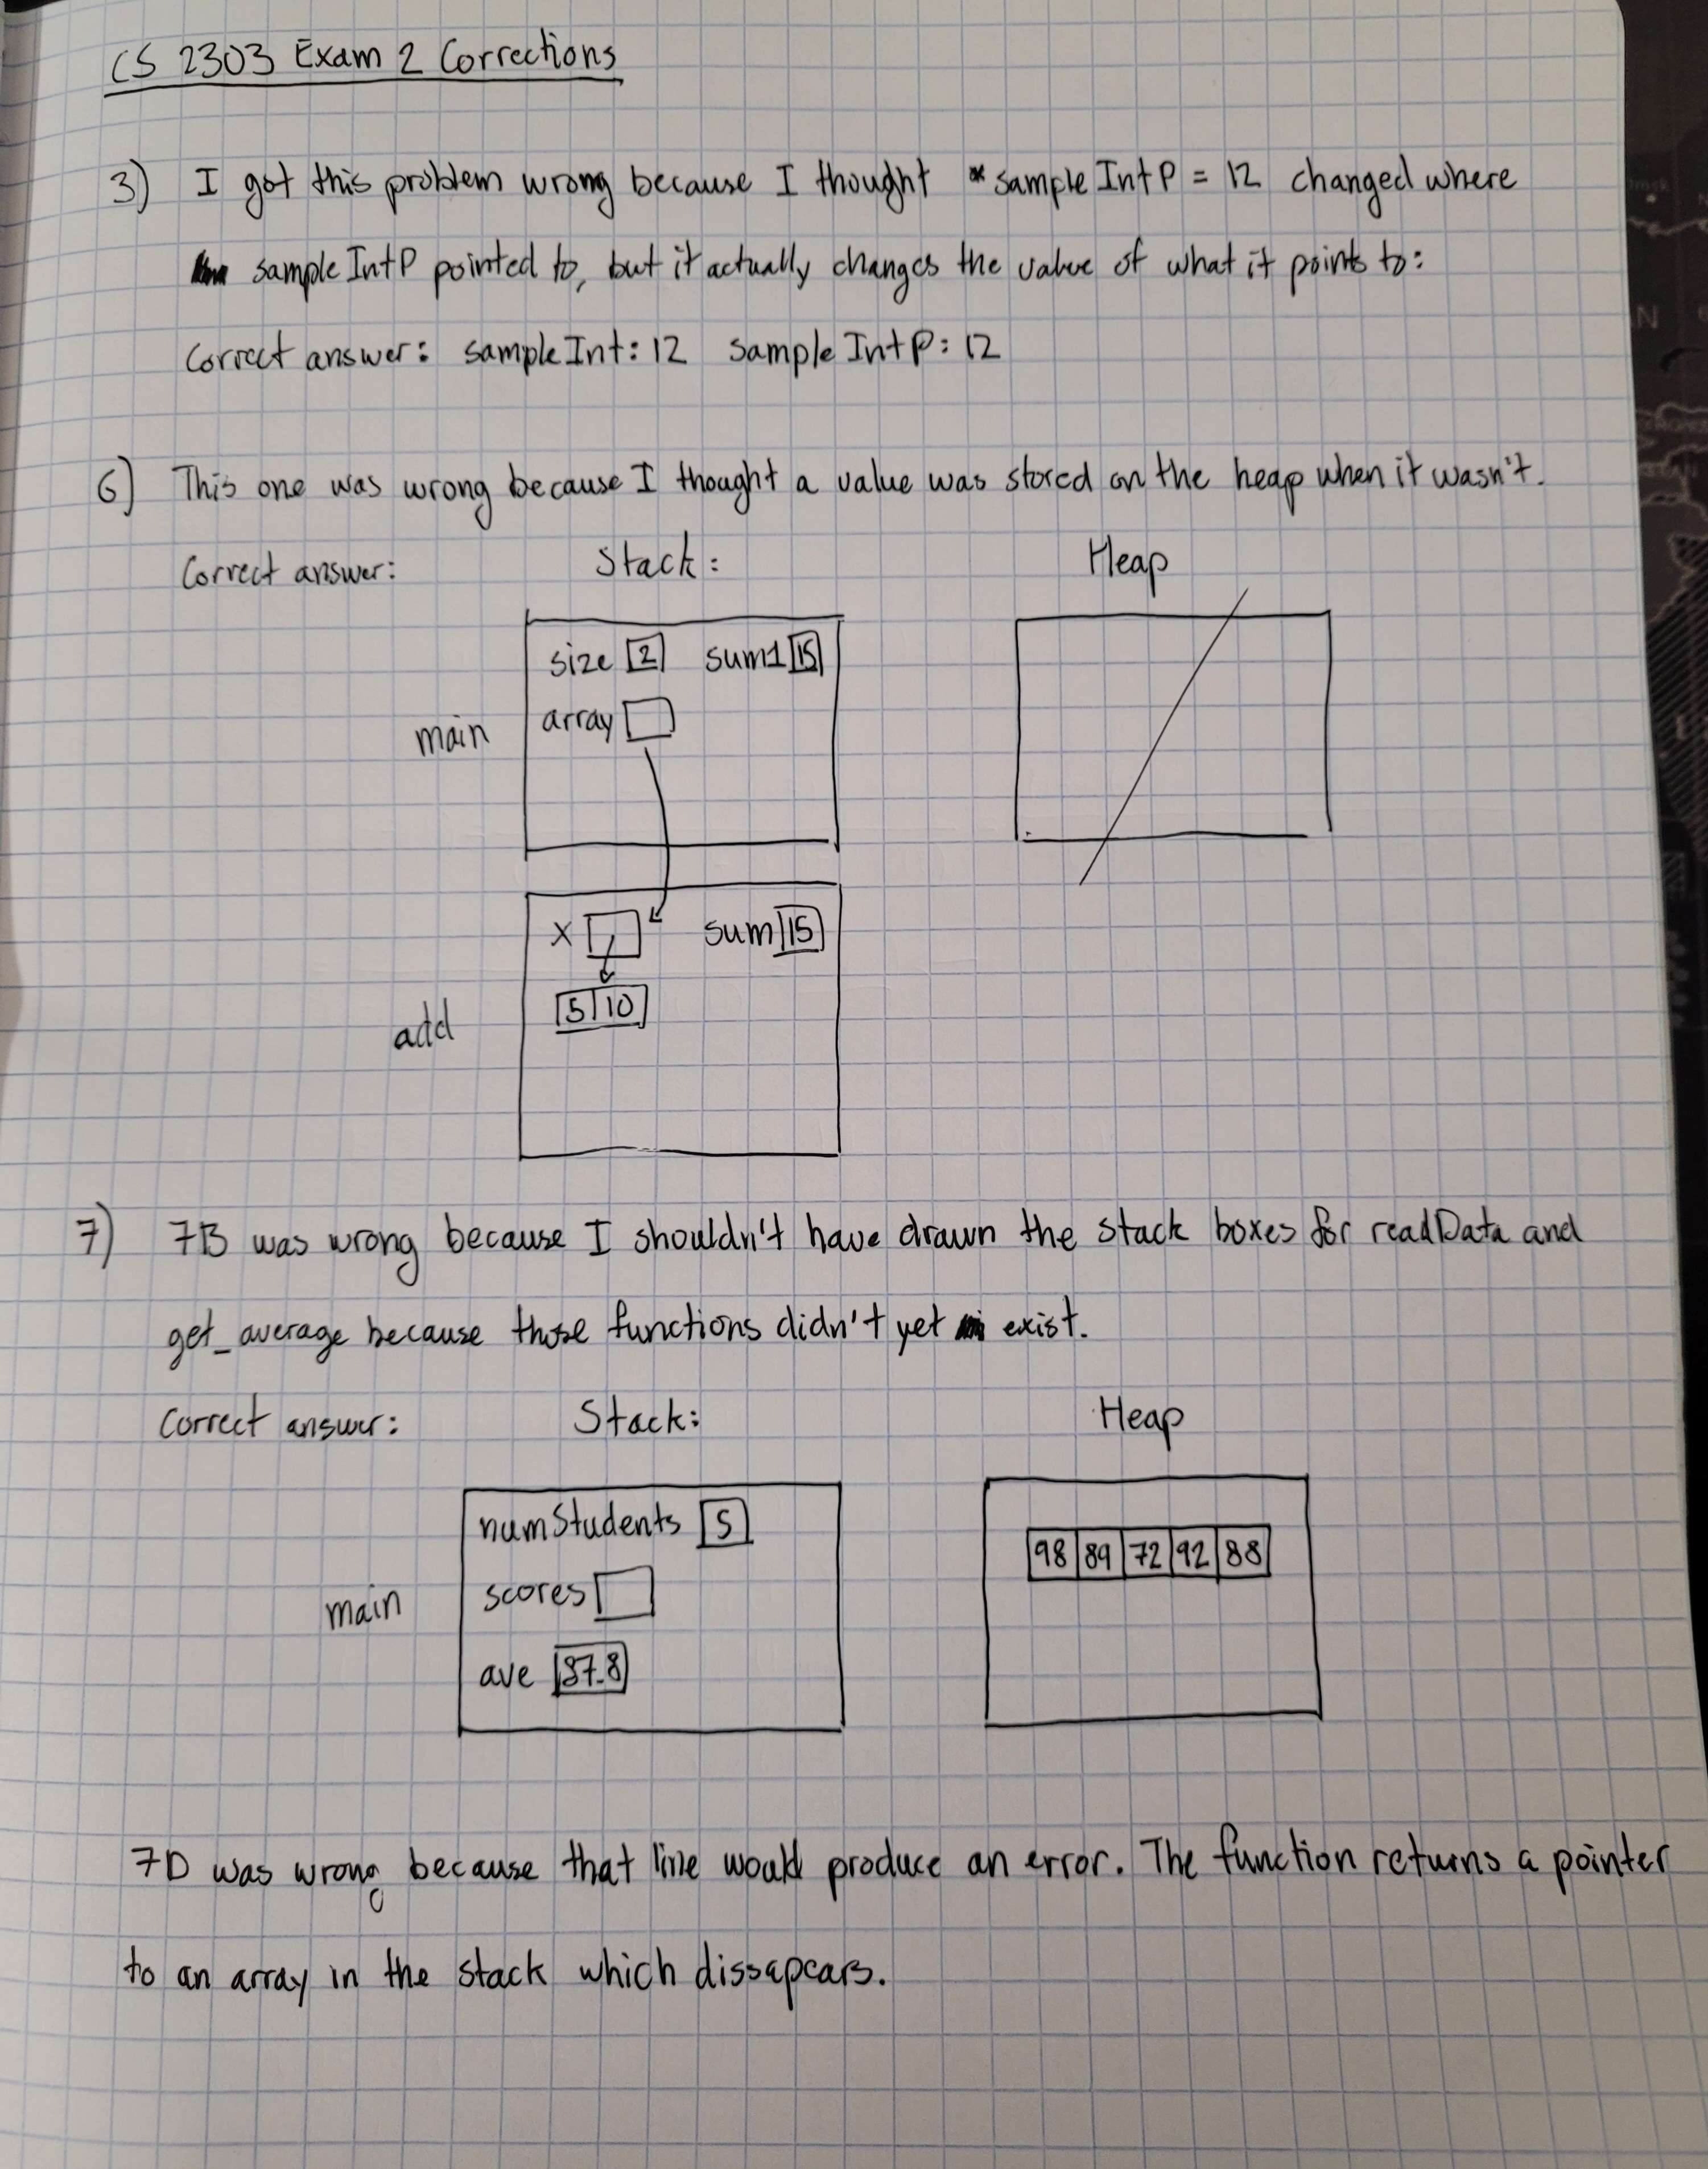 CS 2303 Exam 2 Corrections
3) I got this problem wrong because I thought *sampleIntP = 12 changed where
sampleIntP pointed to, but it actually changes the value of what it points to:
Correct answer: sampleInt: 12 sampleIntP: 12
6) This one was wrong because I thought a value was stored on the heap when it wasn't.
Correct answer: Stack: Heap
size 2 sum1 15
array
main
x sum 15
5 10
add
7) 7B was wrong because I shouldn't have drawn the stack boxes for readData and
get_average because those functions didn't yet exist.
Correct answer: Stack: Heap
numStudents 5
98 89 72 92 88
scores
main
ave 87.8
7D was wrong because that line would produce an error. The function returns a pointer
to an array in the stack which dissapears.